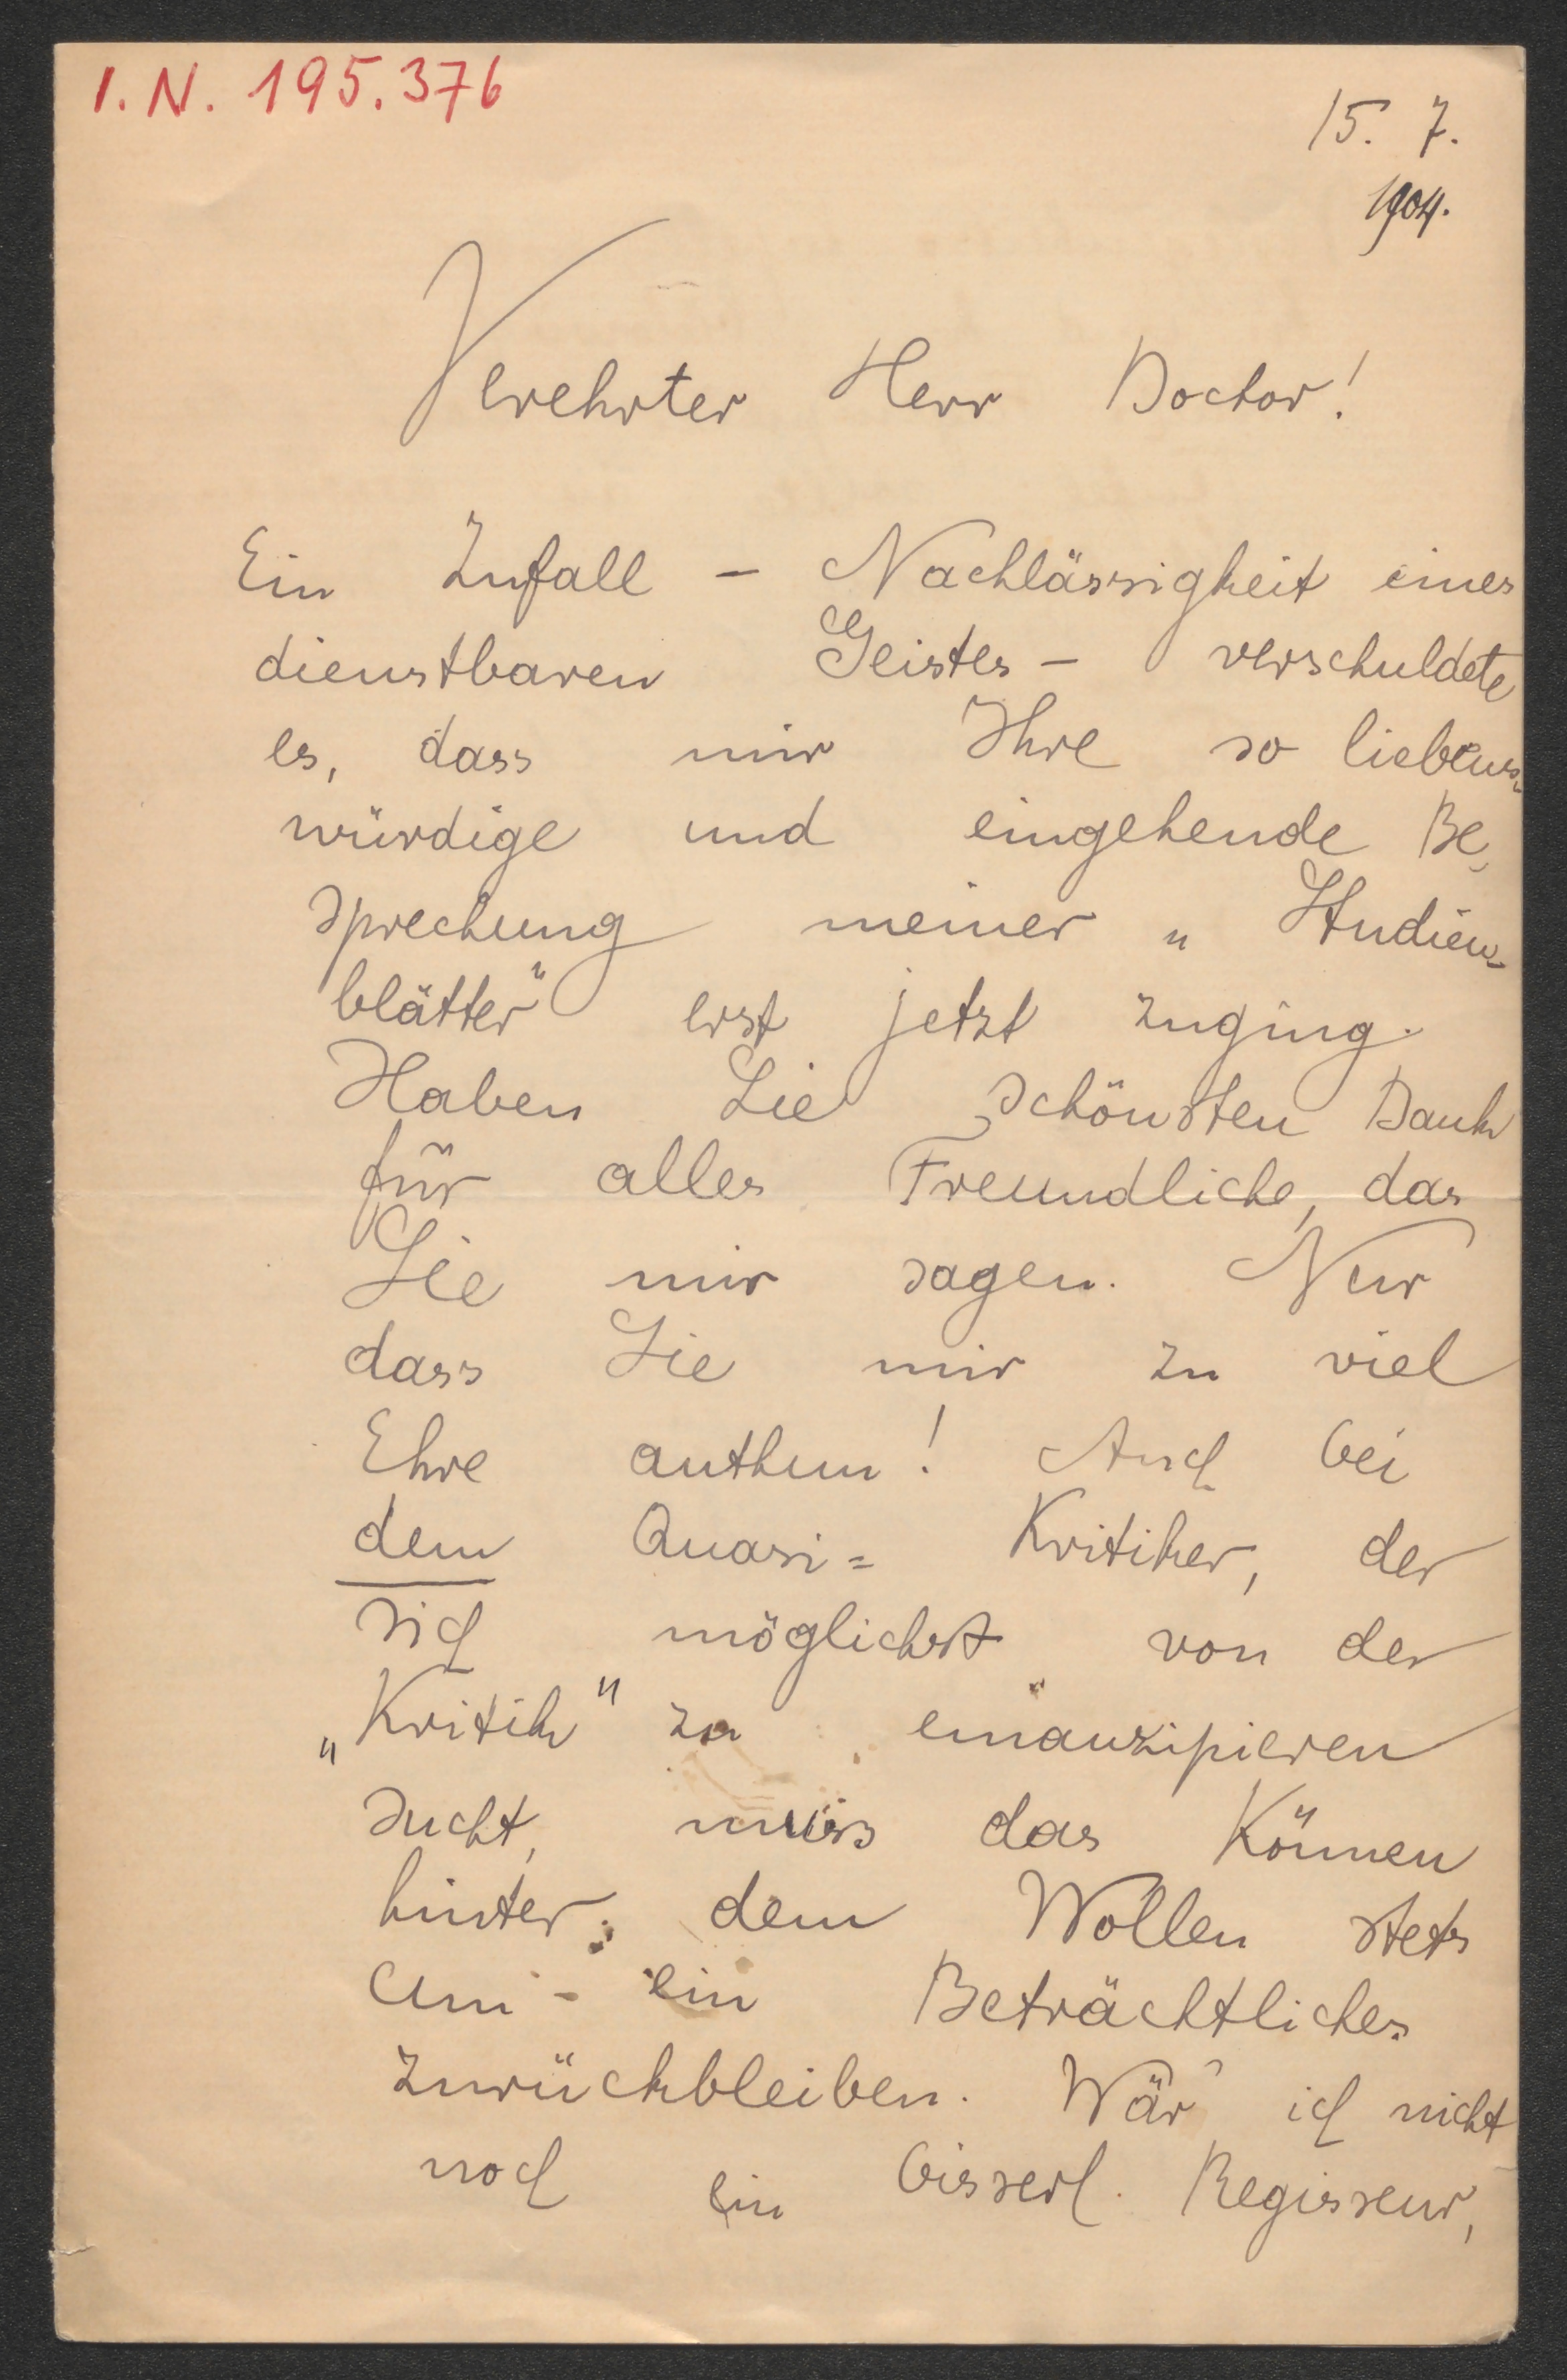 I. N. 195.376
15. 7.
1904.
Verehrter Herr Doctor!
Ein Zufall – Nachlässigkeit eines
dienstbaren Geistes – verschuldete
es, dass mir Ihre so liebens-
würdige und eingehende Be-
sprechung meiner „Studien-
blätter“ erst jetzt zuging.
Haben Sie schönsten Dank
für alles Freundliche, das
Sie mir sagen. Nur
dass Sie mir zu viel
Ehre anthun! Auch bei
dem Quasi= Kritiker, der
sich möglichst von der
„Kritik“ zu emanzipieren
sucht, muss das Können
hinter dem Wollen stets
um - ein Beträchtliches
zurückbleiben. Wär' ich nicht
noch ein bisserl Regisseur,